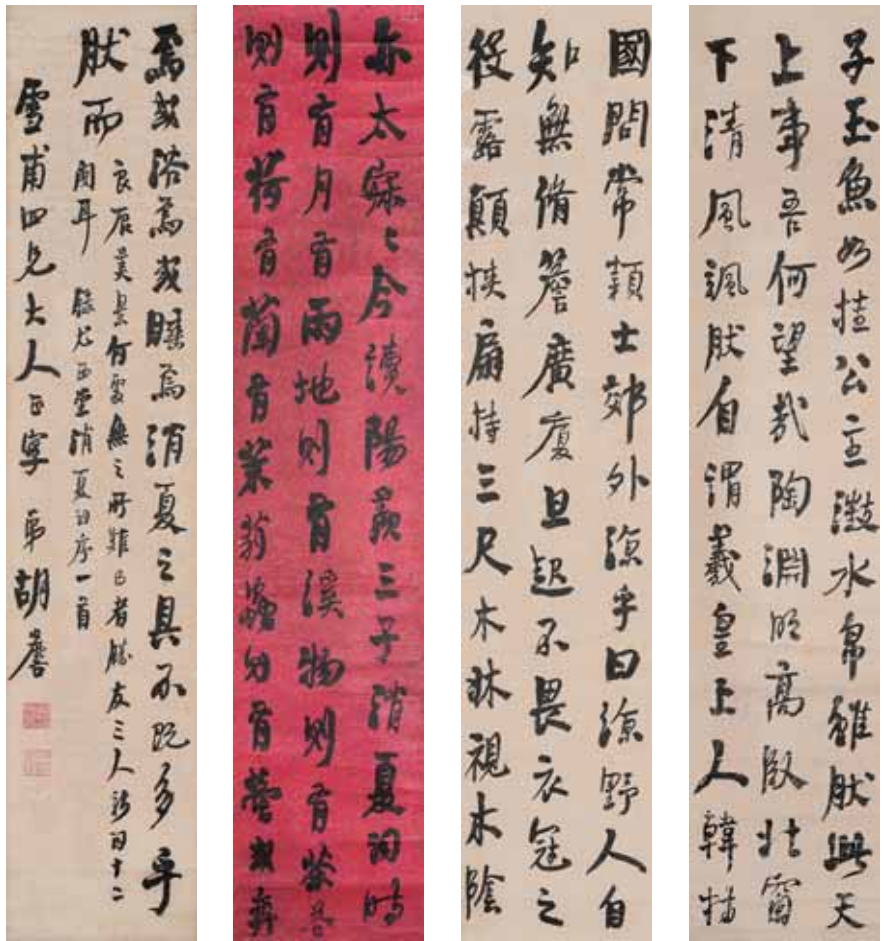 子玉魚如挂公主澂水帛雖然與天
上事吾何望哉陶淵明高臥北窗
下清風颯然自謂羲皇上人韓持
國問常穎士郊外涼乎曰涼野人自
知無脩簷廣廈旦起不畏衣冠之
役露顛挾扇持三尺木牀視木陰
亦太寂〻今讀陽羨三子消夏詞時
則有月有雨地則有溪物則有茶
則有荷有蘭有茉莉有螢或
焉或浴焉或睡焉消夏之具不既多乎
然而良辰美景何處無之所難已者勝友三人新詞十二
闋耳 錄尤西堂消夏詞序一首
雪甫四兄大人正字 弟胡